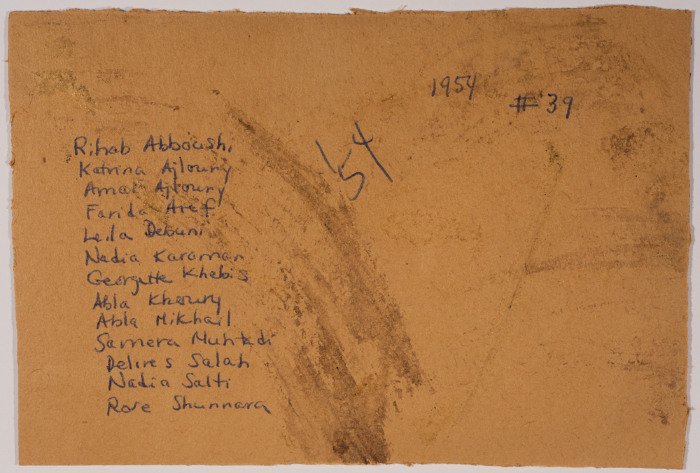 1954
# 39
'54
Rihab Abboushi
Katrina Ajlouny
Amal Ajlouny
Farida Aref
Leila Debuni
Nadia Karaman
Georgette Khebis
Abla Khoury
Abla Mikhail
Samera Muhtadi
Delires Salah
Nadia Salti
Rose Shunnara